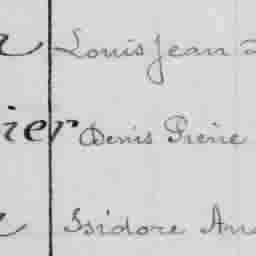 Louis Jean
ier Denis Pierre
Isidore